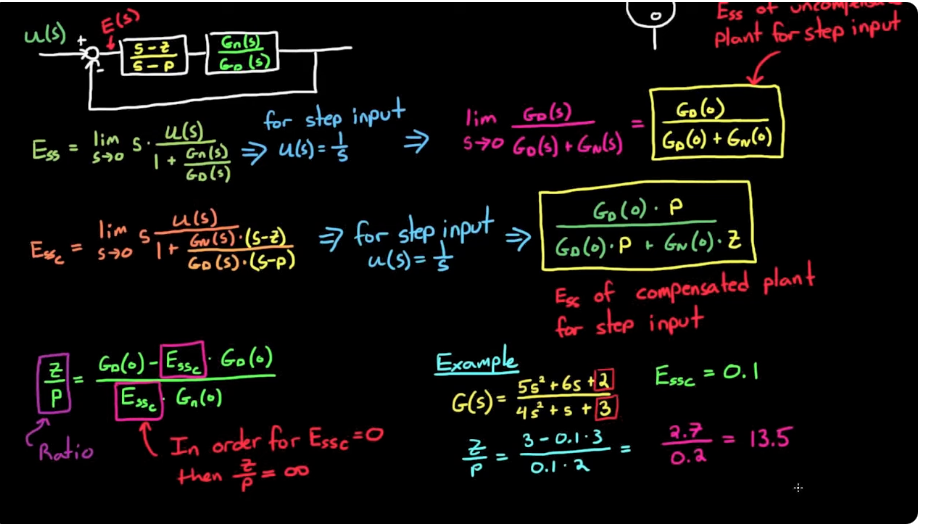 Ess of uncompensated
plant for step input
E(s)
u(s) + - (s-z)/(s-p) Gn(s)/GD(s)
Ess = lim s→0 s · u(s)/(1 + Gn(s)/GD(s)) ⇒ for step input u(s) = 1/s ⇒ lim s→0 GD(s)/(GD(s) + GN(s)) = GD(0)/(GD(0) + GN(0))
Essc = lim s→0 s u(s)/(1 + GN(s)·(s-z)/GD(s)·(s-p)) ⇒ for step input u(s) = 1/s ⇒ GD(0) · P/(GD(0) · P + GN(0) · Z)
Ess of compensated plant
for step input
Z/P = (GD(0) - Essc · GD(0))/(Essc · Gn(0))
Ratio
In order for Essc = 0
then Z/P = ∞
Example
G(s) = (5s² + 6s + 2)/(4s² + s + 3) Essc = 0.1
Z/P = (3 - 0.1 · 3)/(0.1 · 2) = 2.7/0.2 = 13.5